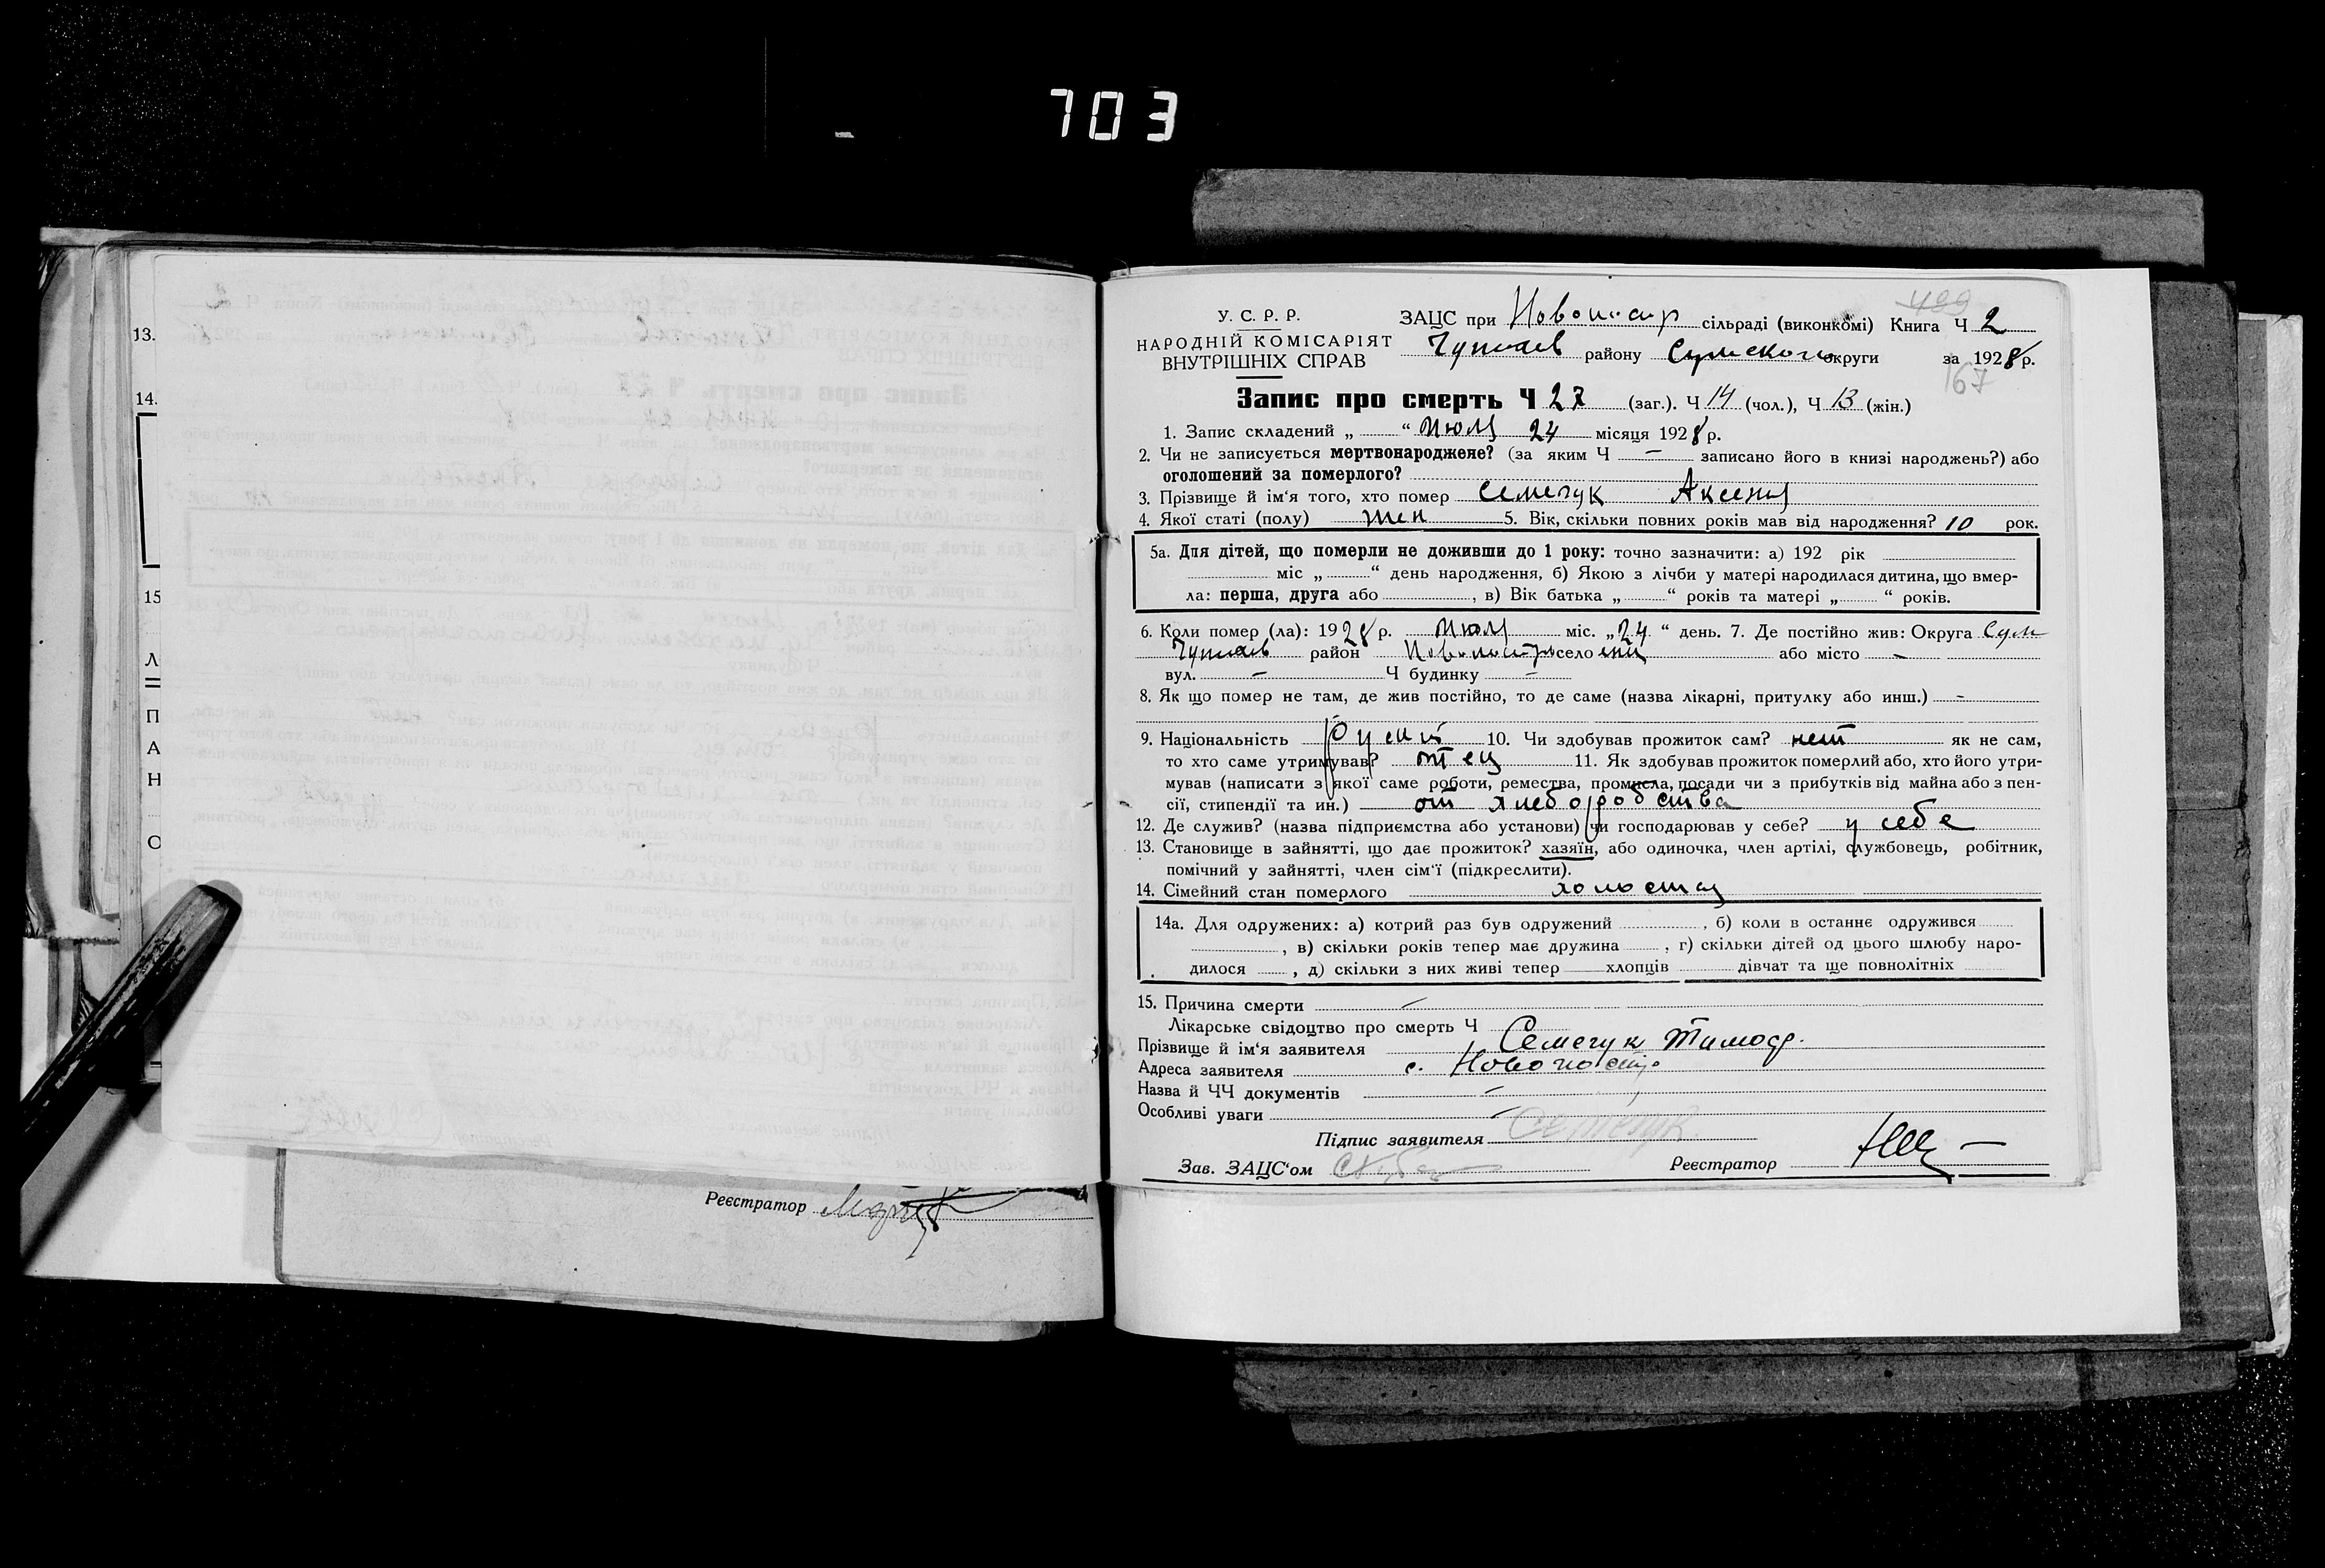 703
13.
14.
15
Л
П
А
Н
О
Реєстратор
У. С. Р. Р.
НАРОДНІЙ КОМІСАРІЯТ
ВНУТРІШНІХ СПРАВ
499
ЗАЦС при сільраді (виконкомі) Книга Ч 2
району Сумского округи за 1928 р.
167
Запис про смерть Ч 27 (заг.). Ч 14 (чол.), Ч 13 (жін.)
1. Запис складений „ “ Июля 24 місяця 1928 р.
2. Чи не записується мертвонароджене? (за яким Ч — записано його в книзі народжень?) або
оголошений за померлого?
3. Прізвище й ім‘я того, хто помер Семечук Аксения
4. Якої статі (полу) жен 5. Вік, скільки повних років мав від народження? 10 рок.
5а. Для дітей, що померли не доживши до 1 року: точно зазначити: а) 192 рік
міс „ “ день народження, б) Якою з лічби у матері народилася дитина, що вмер-
ла: перша, друга або , в) Вік батька „ “ років та матері „ “ років.
6. Коли помер (ла): 1928 р. Июля міс. „24 “ день. 7. Де постійно жив: Округа Сум
район село або місто —
вул. — Ч будинку —
8. Як що помер не там, де жив постійно, то де саме (назва лікарні, притулку або инш.) —
9. Національність 10. Чи здобував прожиток сам? нет як не сам,
то хто саме утримував? отец 11. Як здобував прожиток померлий або, хто його утри-
мував (написати з якої саме роботи, ремества, промисла, посади чи з прибутків від майна або з пен-
сії, стипендії та ин.) от хлеборобства
12. Де служив? (назва підприємства або установи) чи господарював у себе? у себе
13. Становище в зайнятті, що дає прожиток? хазяїн, або одиночка, член артілі, службовець, робітник,
помічний у зайнятті, член сім‘ї (підкреслити).
14. Сімейний стан померлого холостая
14а. Для одружених: а) котрий раз був одружений , б) коли в останнє одружився
, в) скільки років тепер має дружина , г) скільки дітей од цього шлюбу наро-
дилося , д) скільки з них живі тепер хлопців дівчат та ще повнолітніх
15. Причина смерти —
Лікарське свідоцтво про смерть Ч
Прізвище й ім‘я заявителя Семечук Тимоф.
Адреса заявителя с.
Назва й ЧЧ документів —
Особливі уваги —
Підпис заявителя Семечук
Зав. ЗАЦС‘ом Реєстратор